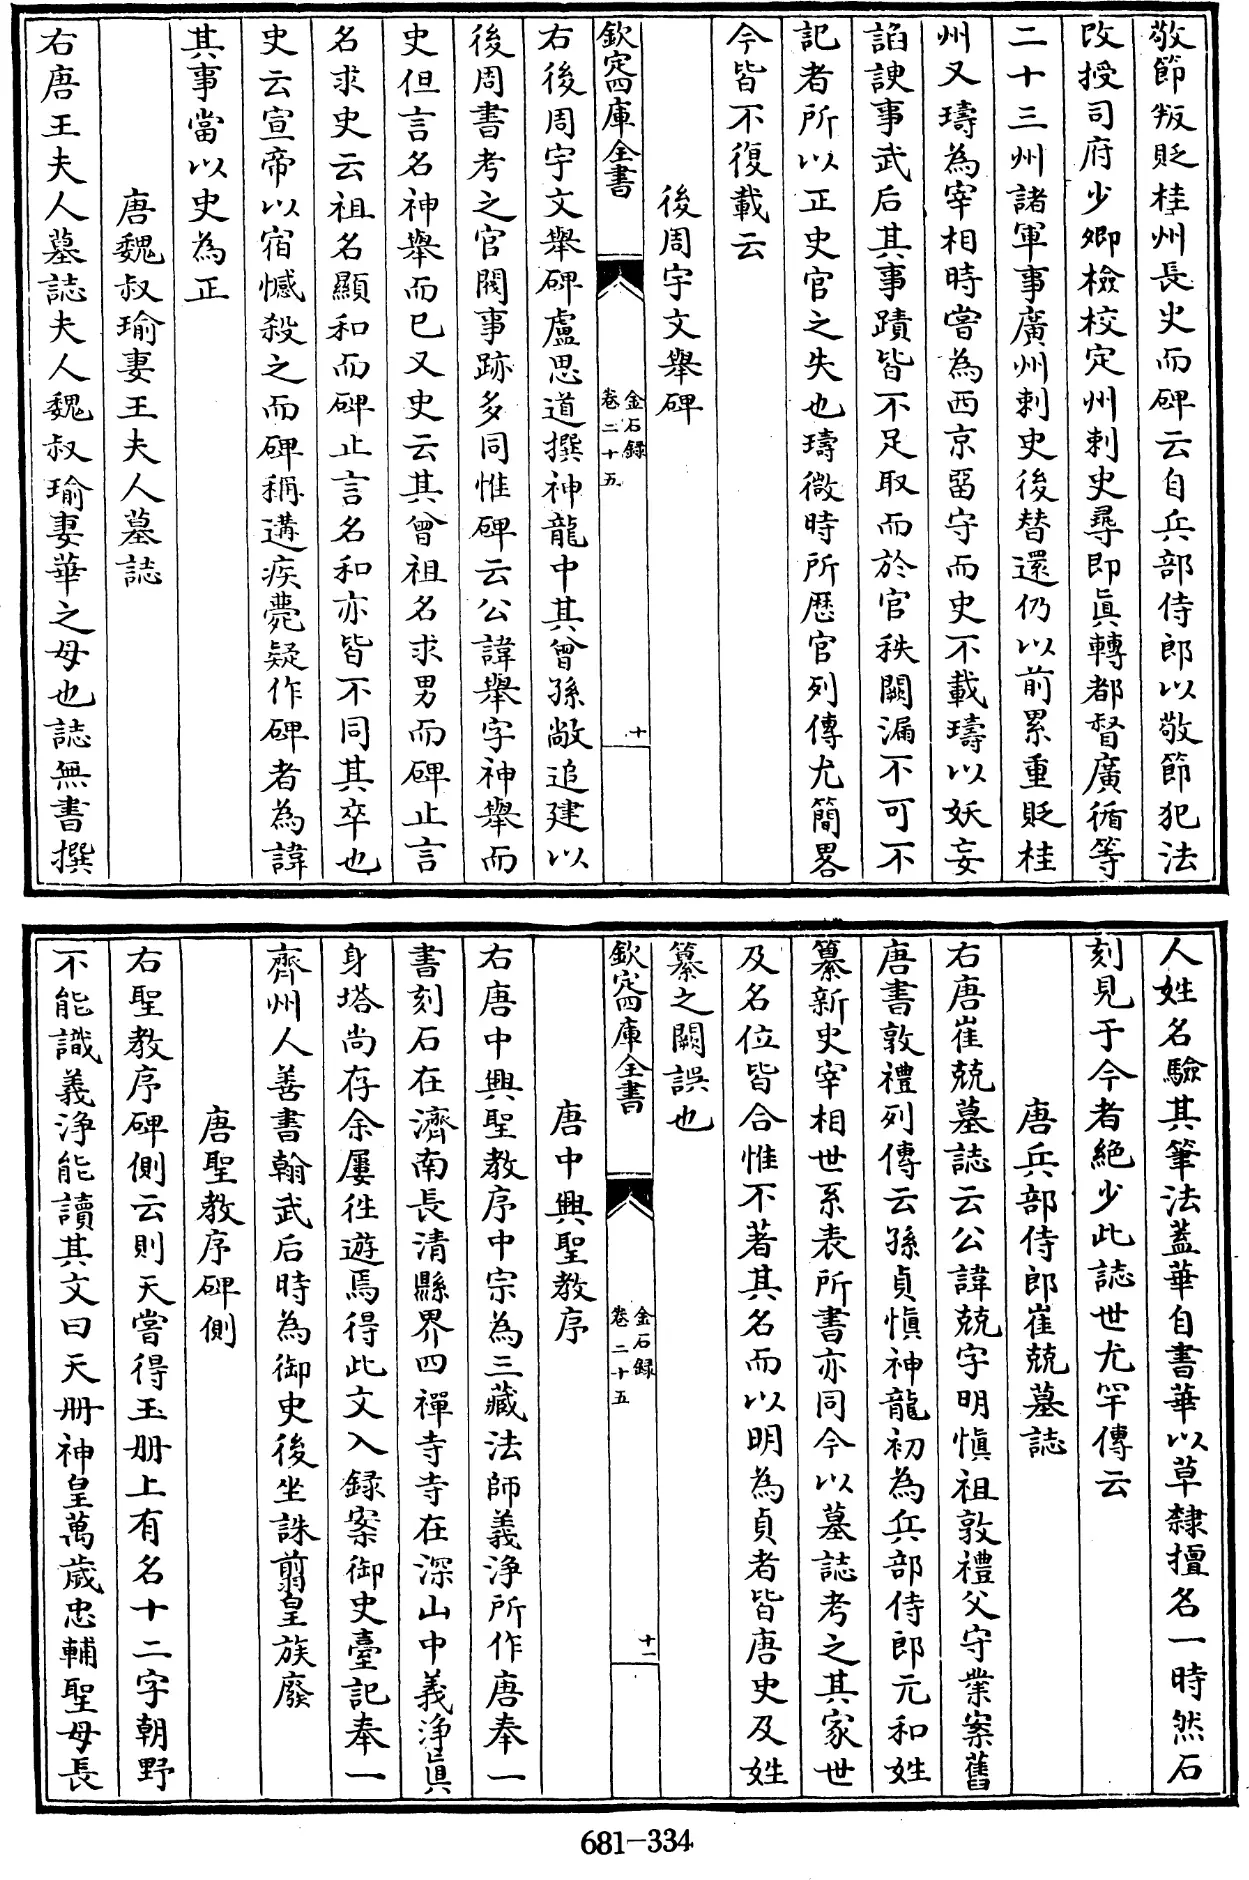 敬節叛貶桂州長史而碑云自兵部侍郎以敬節犯法
改授司府少卿檢校定州刺史尋即真轉都督廣循等
二十三州諸軍事廣州刺史後替還仍以前累重貶桂
州又璹為宰相時嘗為西京留守而史不載璹以妖妄
諂諛事武后其事蹟皆不足取而於官秩闕漏不可不
記者所以正史官之失也璹微時所歷官列傳尤簡畧
今皆不復載云
後周宇文舉碑
欽定四庫全書
金石録
卷二十五
十
右後周宇文舉碑盧思道撰神龍中其曾孫敞追建以
後周書考之官閥事跡多同惟碑云公諱舉字神舉而
史但言名神舉而已又史云其曾祖名求男而碑止言
名求史云祖名顯和而碑止言名和亦皆不同其卒也
史云宣帝以宿憾殺之而碑稱遘疾薨疑作碑者為諱
其事當以史為正
唐魏叔瑜妻王夫人墓誌
右唐王夫人墓誌夫人魏叔瑜妻華之母也誌無書撰
人姓名驗其筆法蓋華自書華以草隸擅名一時然石
刻見于今者絶少此誌世尤罕傳云
唐兵部侍郎崔兢墓誌
右唐崔兢墓誌云公諱兢字明慎祖敦禮父守業案舊
唐書敦禮列傳云孫貞慎神龍初為兵部侍郎元和姓
纂新史宰相世系表所書亦同今以墓誌考之其家世
及名位皆合惟不著其名而以明為貞者皆唐史及姓
纂之闕誤也
欽定四庫全書
金石録
卷二十五
十一
唐中興聖教序
右唐中興聖教序中宗為三藏法師義淨所作唐奉一
書刻石在濟南長清縣界四禪寺寺在深山中義淨真
身塔尚存余屢往遊焉得此文入録案御史臺記奉一
齊州人善書翰武后時為御史後坐誅翦皇族廢
唐聖教序碑側
右聖教序碑側云則天嘗得玉册上有名十二字朝野
不能識義淨能讀其文曰天册神皇萬歲忠輔聖母長
681-334